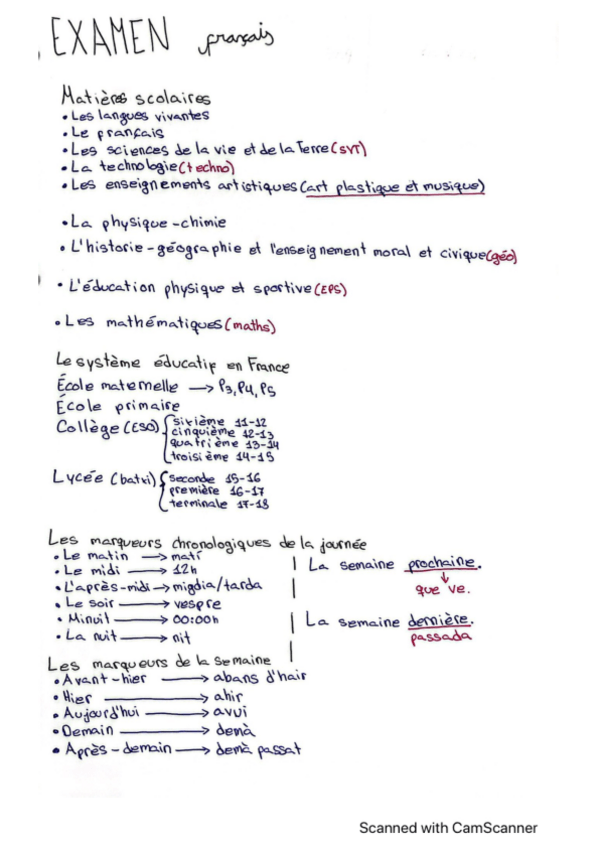 EXAMEN français
Matières scolaires
• Les langues vivantes
• Le français
• Les sciences de la vie et de la Terre (SVT)
• La technologie (techno)
• Les enseignements artistiques (art plastique et musique)
• La physique-chimie
• L'historie-géographie et l'enseignement moral et civique (géo)
• L'éducation physique et sportive (EPS)
• Les mathématiques (maths)
Le système éducatif en France
École maternelle → P3, P4, P5
École primaire
Collège (ESO) { sixième 11-12
cinquième 12-13
quatrième 13-14
troisième 14-15
Lycée (batxi) { seconde 15-16
première 16-17
terminale 17-18
Les marqueurs chronologiques de la journée
• Le matin → matí
• Le midi → 12h
• L'après-midi → migdia/tarda
• Le soir → vespre
• Minuit → 00:00h
• La nuit → nit
La semaine prochaine.
↓
que ve.
La semaine dernière.
passada
Les marqueurs de la semaine
• Avant-hier → abans d'hair
• Hier → ahir
• Aujourd'hui → avui
• Demain → demà
• Après-demain → demà passat
Scanned with CamScanner